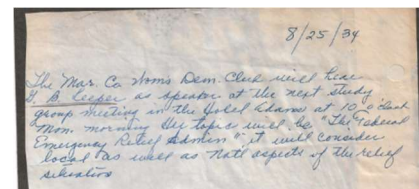 8/25/34
The Mar. Co Woms Dem. Club will hear
B. Leeper as speaker at the next study
group meeting in the Hotel Adams at 10 o'clock
Mon. morning His topic will be "The Federal
Emergency Relief Admin", it will consider
local as well as Nat'l aspects of the relief
situation